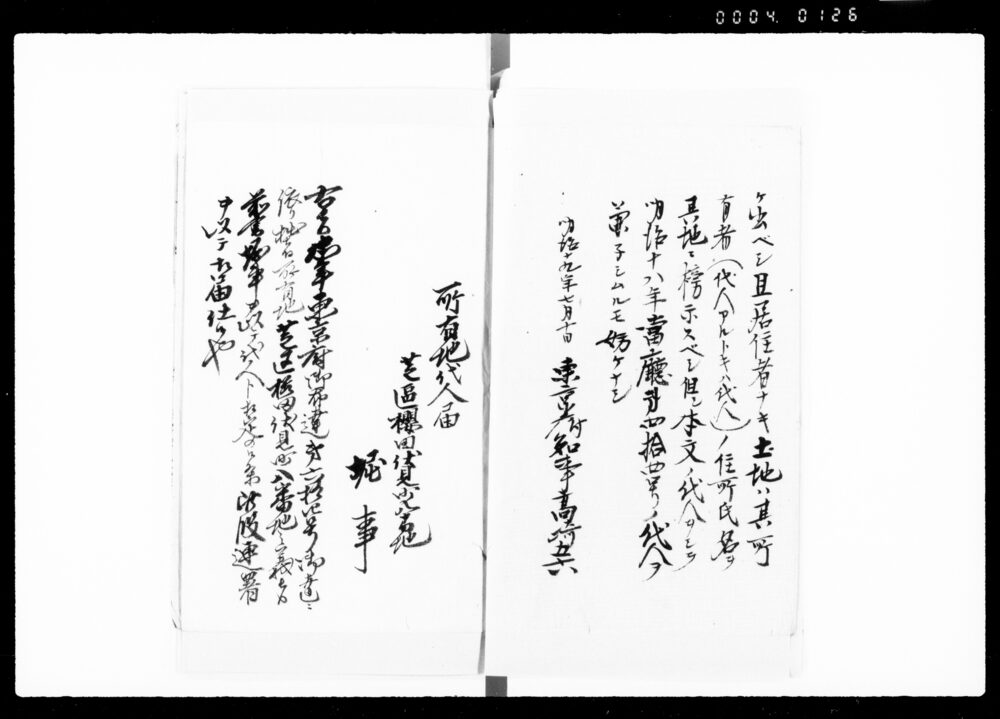 0004 0126
ケ出ベシ且居住者ナキ土地ハ其所
有者(代人アルトキハ代人)ノ住所氏名ヲ
其地ニ榜示スベシ但シ本文ノ代人ヲシテ
明治十八年當廳第四拾四号ノ代人ヲ
兼子シムルモ妨ケナシ
明治十九年七月十日 東京府知事高崎五六
所有地代人届
芝區櫻田伏見町八番地
堀 事
東京府御布達第六拾 号御達ニ
依リ 所有地芝区桜田伏見町八番地之義
前書堀事 代人ト 候条此段連署
ヲ以テ御届仕候也